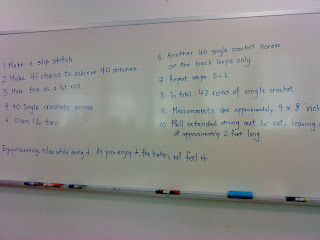 1. Make a slip stitch
2. Make 41 chains to achieve 40 stitches
3. Make this as a 1st row
4. 40 single crochets across
5. Chain 1 & turn
6. Another 40 single crochet across
on the back loops only
7. Repeat steps 5-6
8. In total: 42 rows of single crochet
9. Measurements are approximately 9 x 8 inch
10. Pull extended string out be cut, leaving
of approximately 2 feet long
Enjoy maneuvering, relax while doing it. As you enjoy it, the babies will feel it